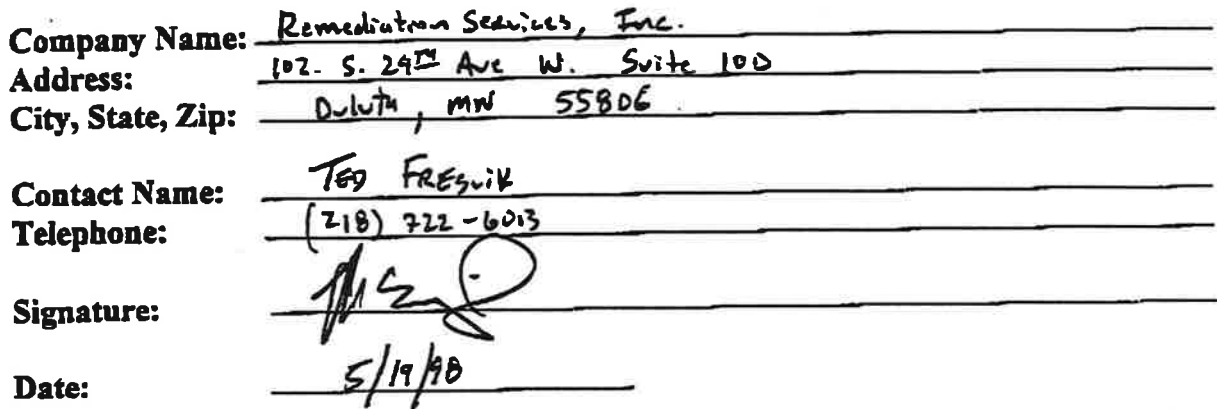 Company Name: Remediation Services, Inc.
Address: 102. S. 29TH Ave W. Suite 100
City, State, Zip: Duluth, MN 55806
Contact Name: TED FRESvik
Telephone: (218) 722-6013
Signature:
Date: 5/19/98